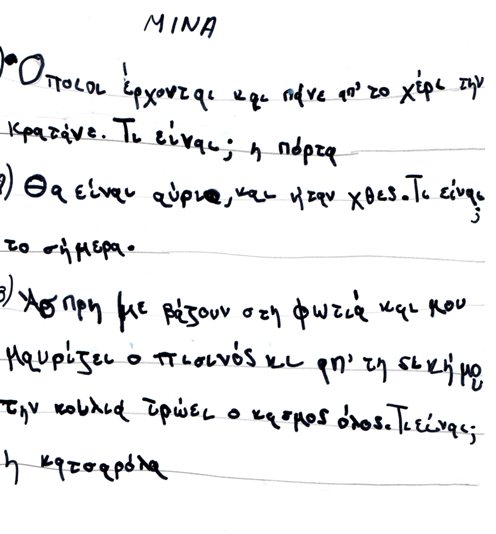 ΜΙΝΑ
) Όποιοι έρχονται και πάνε απ' το χέρι την
κρατάνε. Τι είναι; η πόρτα
) Θα είναι αύριο, και ήταν χθες. Τι είναι;
το σήμερα.
3) Άσπρη με βάζουν στη φωτιά και μου
μαυρίζει ο πισινός κι απ' τη δικήμου
την κοιλιά τρώει ο κασμος όλος. Τι είναι;
η κατσαρόλα